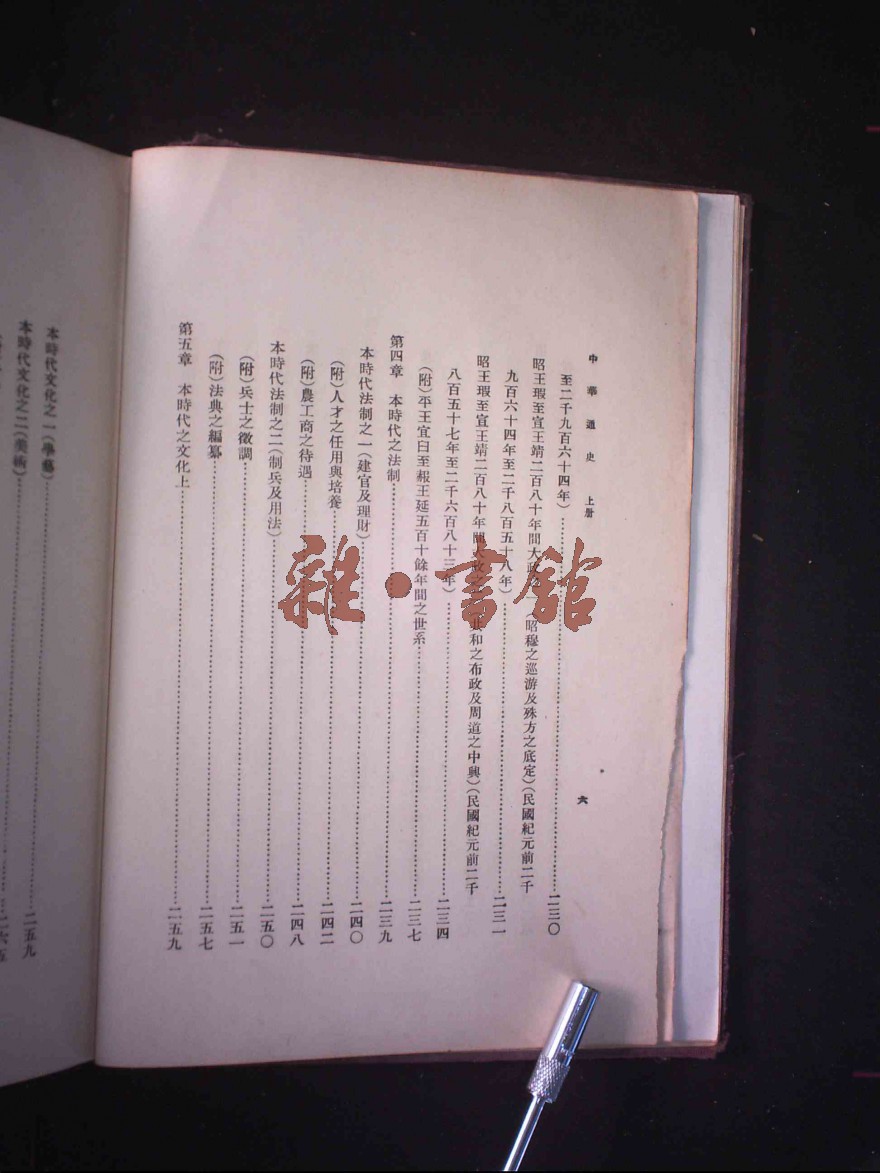 中華通史 上册
六
至二千九百六十四年）……二三〇
昭王瑕至宣王靖二百八十年間大政之一（昭穆之巡游及殊方之底定）（民國紀元前二千
九百六十四年至二千八百五十八年）……二三一
昭王瑕至宣王靖二百八十年間大政之 共和之布政及周道之中興）（民國紀元前二千
八百五十七年至二千六百八十三年）……二三四
（附）平王宜臼至赧王延五百十餘年間之世系……二三七
第四章 本時代之法制……二三九
本時代法制之一（建官及理財）……二四〇
（附）人才之任用與培養……二四二
（附）農工商之待遇……二四八
本時代法制之二（制兵及用法）……二五〇
（附）兵士之徵調……二五一
（附）法典之編纂……二五七
第五章 本時代之文化上……二五九
本時代文化之一（學藝）……二五九
本時代文化之二（美術）……二六五
雜·書館